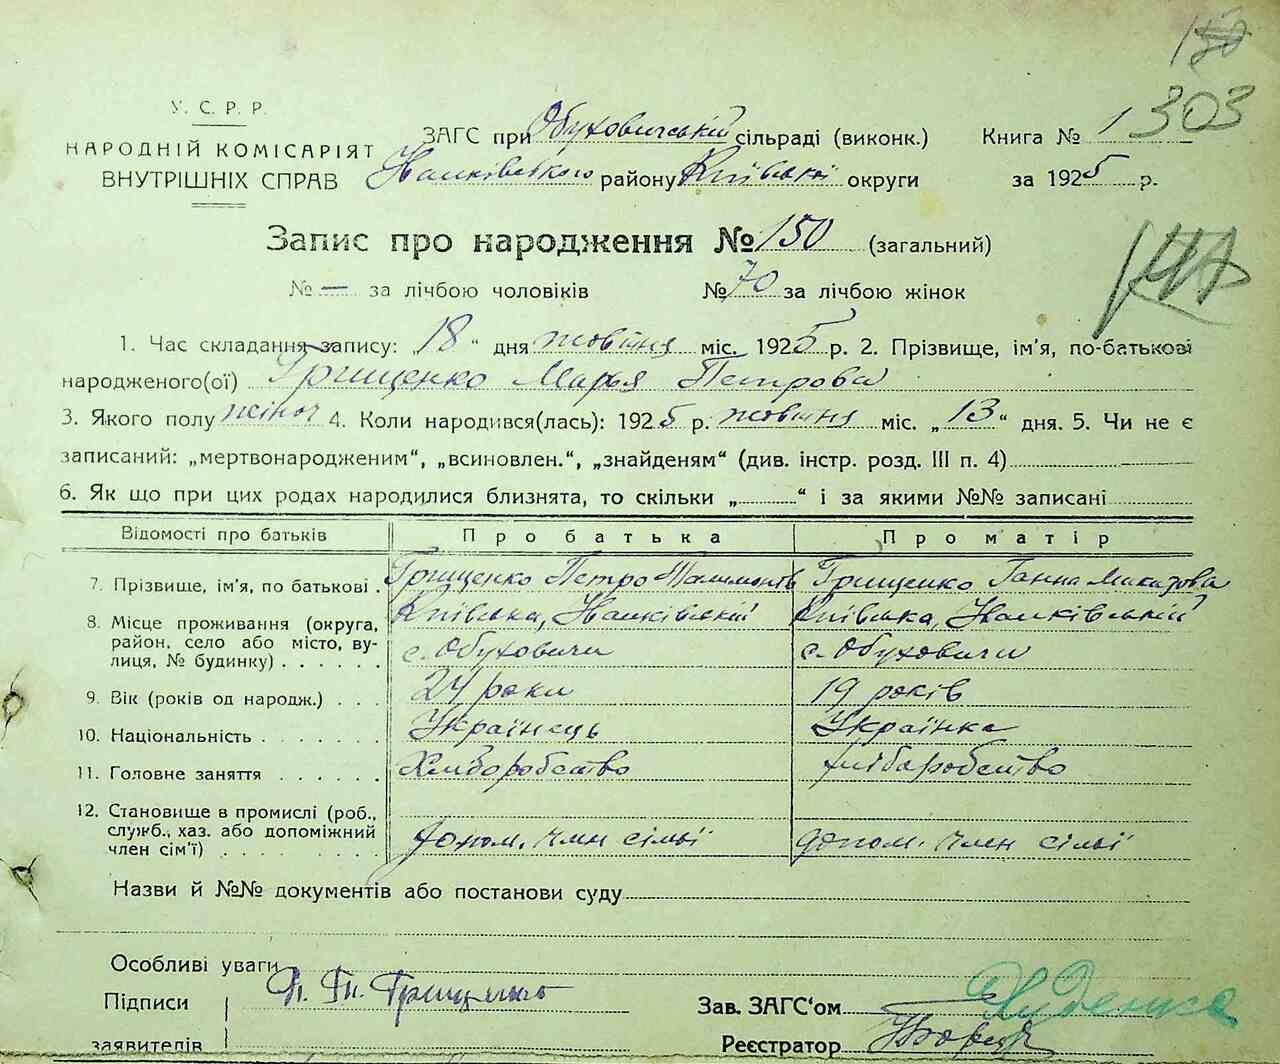 303
У. С. Р. Р.
НАРОДНІЙ КОМІСАРІЯТ
ВНУТРІШНІХ СПРАВ
ЗАГС при Обуховичській сільраді (виконк.) Книга № 1
Іванківського району Київської округи за 1925 р.
Запис про народження № 150 (загальний)
№ — за лічбою чоловіків № 70 за лічбою жінок
1. Час складання запису: „18“ дня жовтня міс. 1925 р. 2. Прізвище, ім’я, по-батькові
народженого(ої) Грищенко Марья Петрова
3. Якого полу жіноч 4. Коли народився(лась): 1925 р. жовтня міс. „13“ дня. 5. Чи не є
записаний: „мертвонародженим“, „всиновлен.“, „знайденям“ (див. інстр. розд. III п. 4)
6. Як що при цих родах народилися близнята, то скільки „ “ і за якими №№ записані
Відомості про батьків Про батька Про матір
7. Прізвище, ім’я, по батькові . Грищенко Петро Грищенко Ганна
8. Місце проживання (округа, район, село або місто, вулиця, № будинку) . . . . . . Київська, Іванківський с. Обуховичи Київська, Іванківський с. Обуховичи
9. Вік (років од народж.) . . . 24 роки 19 років
10. Національність . . . . . . . Українець Українка
11. Головне заняття . . . . . . Хліборобство хліборобство
12. Становище в промислі (роб., служб., хаз. або допоміжний член сім’ї) . . . . . . . . допом. член сімьї допом. член сімьї
Назви й №№ документів або постанови суду
Особливі уваги
Підписи Грищенко Зав. ЗАГС‘ом
заявителів Реєстратор